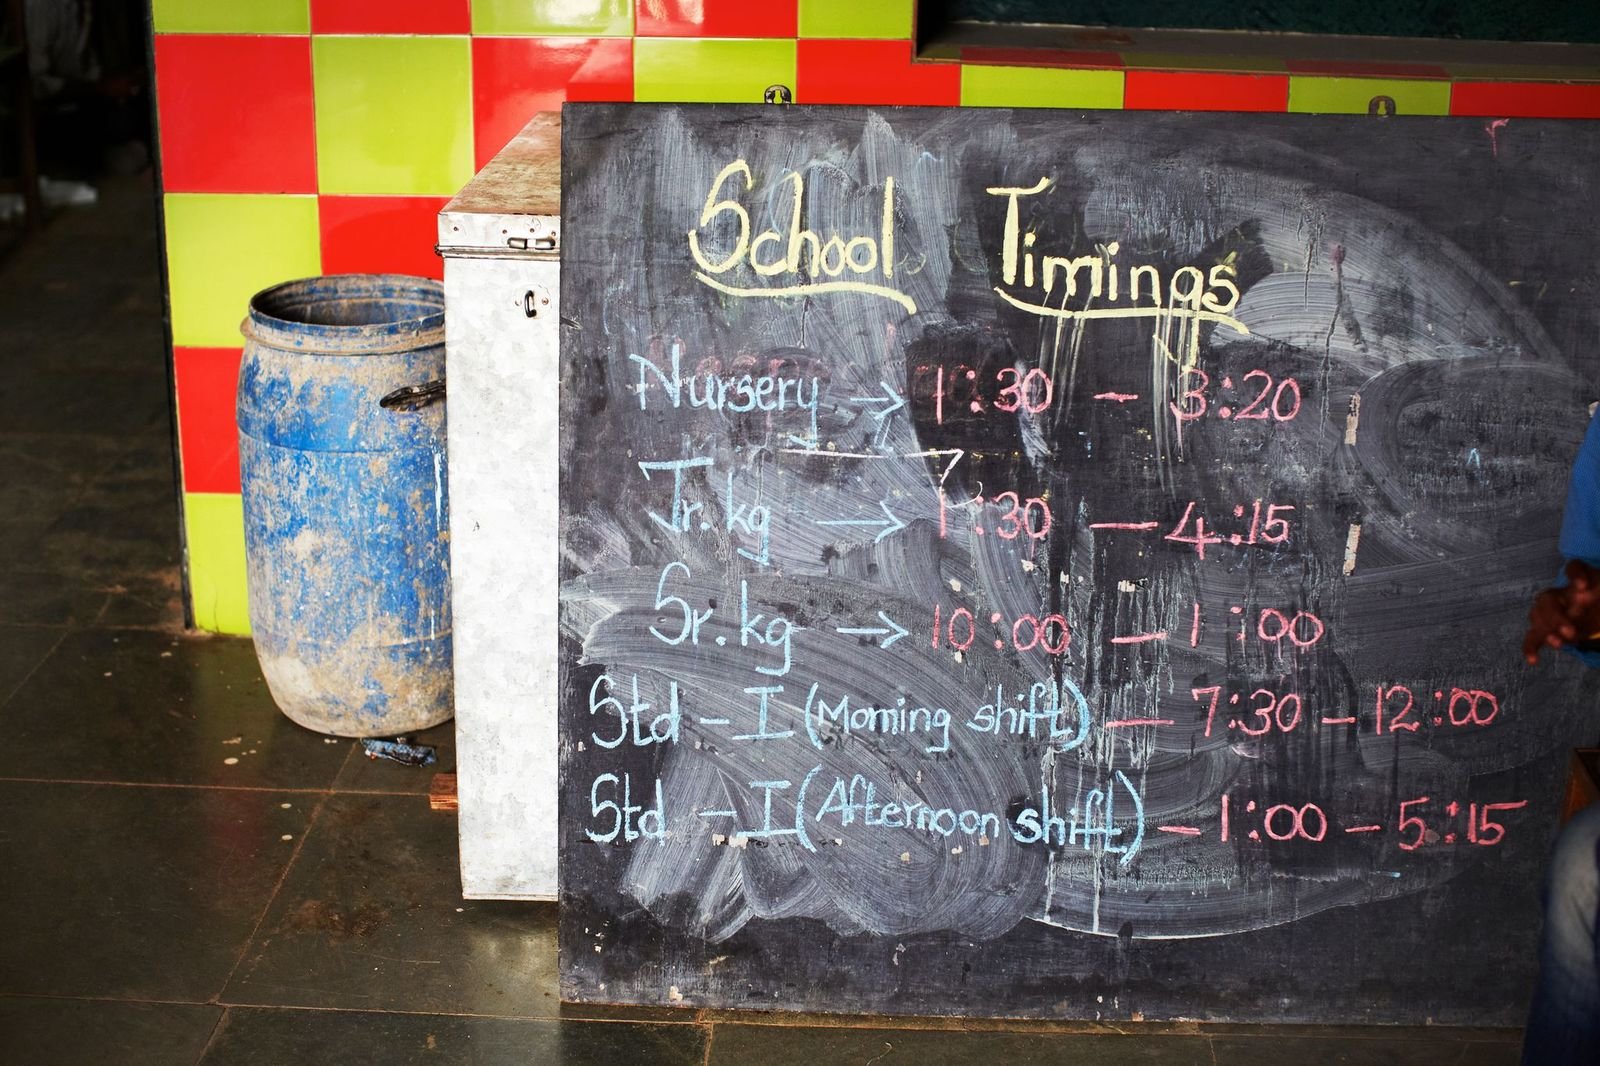 School Timings
Nursery → 1:30 — 3:20
Jr. kg → 1:30 — 4:15
Sr. kg → 10:00 — 1:00
Std - I (Morning shift) — 7:30 — 12:00
Std - I (Afternoon shift) — 1:00 — 5:15